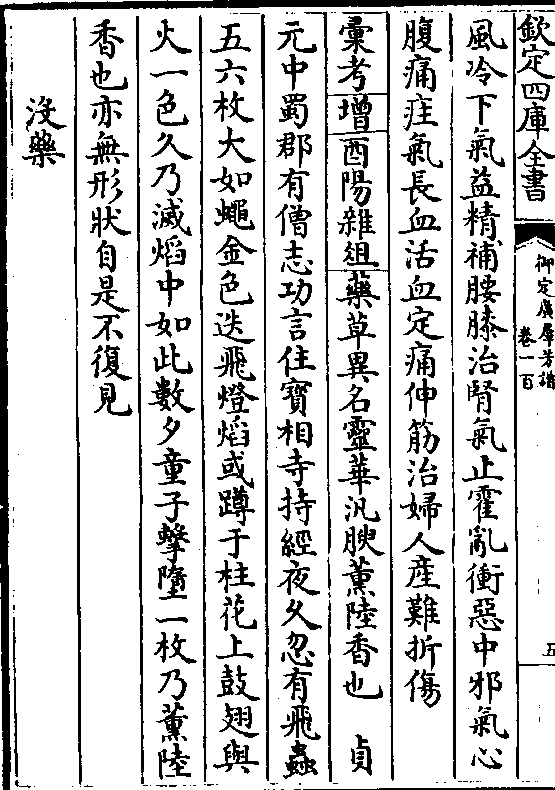 欽定四庫全書
御定廣羣芳譜
卷一百
五
風冷下氣益精補腰膝治腎氣止霍亂衝惡中邪氣心
腹痛疰氣長血活血定痛伸筋治婦人産難折傷
彙考增酉陽雜俎藥草異名靈華汎腴薰陸香也　貞
元中蜀郡有僧志功言住寶相寺持經夜久忽有飛蟲
五六枚大如蠅金色迭飛燈熖或蹲于柱花上鼓翅與
火一色久乃滅熖中如此數夕童子擊墮一枚乃薰陸
香也亦無形狀自是不復見
没藥